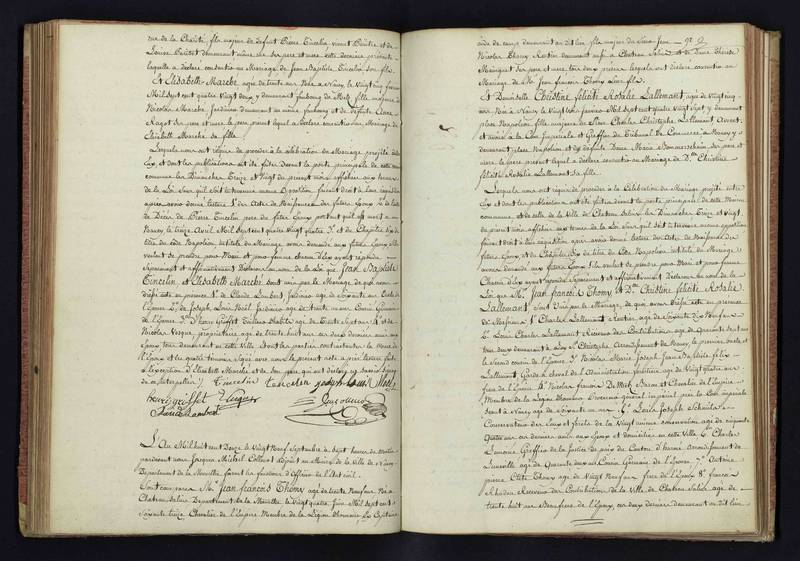 rue de la Charité, fils majeur de défunt Pierre Tincelin vivant Peintre et de
Louise Pautet demeurant même rue ses père et mère cette dernière présente
laquelle a déclaré consentir au Mariage de Jean Baptiste Tincelin son fils.
Et Elisabeth Marché agée de trente ans Née à Nancy le Vingt cinq
Mil Sept cent quatre Vingt deux y demeurant faubourg de Metz fille majeure de
Nicolas Marché Jardinier demeurant au même faubourg et de défunte Anne
Ragot ses père et mère le père présent lequel a déclaré consentir au Mariage de
Elisabeth Marché sa fille.
Lesquels nous ont requis de procéder à la célébration du Mariage projetté entre
Eux, et dont les publications ont été faites devant la porte principale de cette maison
commune les Dimanches Treize et Vingt du présent mois affichées aux termes
de la Loi Sans qu'il soit survenu aucune opposition faisant droit à leur réquisition
après avoir donné lecture 1° des Actes de Naissances des futurs Epoux 2° de celui
de Décès de Pierre Tincelin père du futur Epoux portant qu'il est mort à
Nancy le treize Avril Mil Sept cent quatre Vingt quatre 3° et du Chapitre Six du
titre du code Napoléon intitulé du Mariage avons demandé aux futurs Epoux S'ils
veulent se prendre pour Mari et pour femme chacun d'eux ayant répondu
Séparément et affirmativement Déclarons au nom de la Loi que Jean Baptiste
Tincelin, et Elisabeth Marché sont unis par le Mariage de quoi avons
dressé acte en présence 1° de Claude Lambert Jardinier agé de Soixante
2° de Joseph Louis Noël Jardinier agé de trente
l'Epoux 3° Henry Griffet Tailleur d'habits agé de Trente Sept ans 4° et de
Nicolas Vosgin Journalier agé de trente huit ans ces deux derniers amis des
Epoux tous demeurant en cette Ville. Dont les parties contractantes la Mère de
l'Epoux et les quatre témoins Signé avec nous le présent acte après lecture faite
à l'exception d'Elisabeth Marché et de son père qui ont déclaré ne savoir Signer
de ce interpellés. Tincelin tencelin joseph Louis Noël
henry griffet
Claude Lambert
L'An Mil huit cent Douze le Vingt Neuf Septembre à Sept heures du matin
pardevant nous Jacques Michel Collenot Adjoint au Maire de la Ville de Nancy
Département de la Meurthe, faisant les fonctions d'Officier de l'état civil.
Sont comparus Mr. Jean François Thomy agé de trente Neuf ans Né à
Chateau Salins Département de la Meurthe le Vingt quatre Juin Mil Sept cent
Soixante treize Chevalier de l'Empire Membre de la Légion d'honneur Ex Capitaine
aide de camp demeurant au dit lieu fils majeur du Sieur Jean
Nicolas Thomy Rentier demeurant aussi à Chateau Salins et de Dame Thérèse
Mainguet Ses père et mère tous deux présens lesquels ont déclaré consentir au
Mariage de Mr. Jean François Thomy leur fils.
Et Demoiselle Christine Félicité Rosalie Lallemant agée de Vingt cinq
ans Née à Nancy le Vingt six Janvier Mil Sept cent quatre Vingt Sept y demeurant
place Napoléon fille majeure du Sieur Charles Christophe Lallemant Avocat
et avoué à la Cour Impériale et Greffier du Tribunal de Commerce à Nancy y
demeurant place Napoléon et de défunte Dame Marie Bommersheim ses père et
mère le père présent lequel a déclaré consentir au Mariage de Dlle. Christine
Félicité Rosalie Lallemant Sa fille.
Lesquels nous ont requis de procéder à la Célébration du Mariage projetté entre
Eux et dont les publications ont été faites devant la porte principale de cette Maison
commune et de celle de la Ville de Chateau Salins les Dimanches Treize et Vingt
du présent mois affichées aux termes de la Loi Sans qu'il soit survenu aucune opposition
faisant droit à leur réquisition après avoir donné lecture des Actes de Naissances des
futurs Epoux et du Chapitre Six du titre du Code Napoléon intitulé du Mariage
avons demandé aux futurs Epoux S'ils veulent se prendre pour Mari et pour femme
chacun d'eux ayant répondu Séparément et affirmativement Déclarons au nom de la
Loi que Mr. Jean François Thomy, et Dlle. Christine Félicité Rosalie
Lallemant, sont Unis par le Mariage, de quoi avons dressé acte en présence
de Messieurs 1° Charles Lallemant Rentier agé de Soixante Dix Neuf ans
2° Louis Charles Lallemant Receveur des Contributions agé de Quarante Sept ans
tous deux demeurant à Christophe Arrondissement de Nancy, le premier oncle et
le Second cousin de l'Epouse, 3° Nicolas Marie Joseph Jean Baptiste Félix
Lallemant Garde à cheval de l'Administration forestière agé de Vingt quatre ans
frère de l'Epouse 4° Nicolas François De Metz Baron et Chevalier de l'Empire
Membre de la Légion d'honneur Procureur général impérial près la Cour impériale
séant à Nancy agé de Soixante un ans 5° Louis Joseph
Conservateur des Eaux et forêts de la Vingt unième conservation agé de cinquante
quatre ans ces derniers amis des Epoux et domiciliés en cette Ville 6° Charles
Lemoine Greffier de la Justice de paix du Canton d'
Lunéville agé de Quarante deux ans Cousin Germain de l'Epouse 7° Antoine
Pierre Claude Thomy agé de Vingt Neuf ans frère de l'Epoux 8° François
Receveur des Contributions de la Ville de Chateau Salins agé de
trente huit ans Beaufrère de l'Epoux, ces deux derniers demeurant au dit lieu